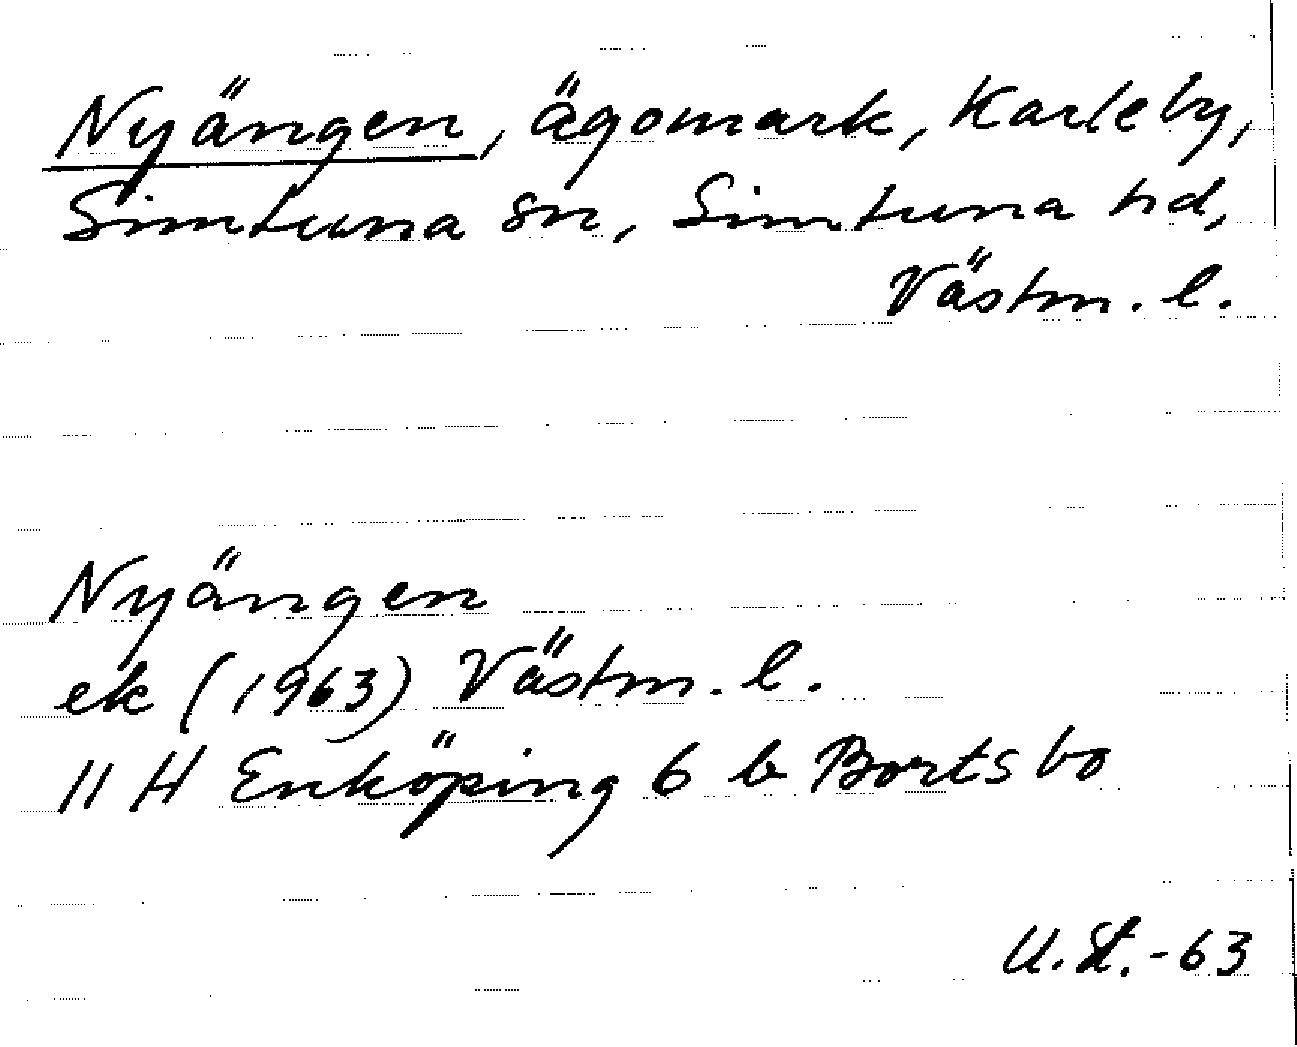 Nyängen, ägomark, Karleby,
Simtuna sn, Simtuna hd,
Västm. l.
Nyängen
ek (1963) Västm. l.
11 H Enköping 6 b Bortsbo
U. St. -63